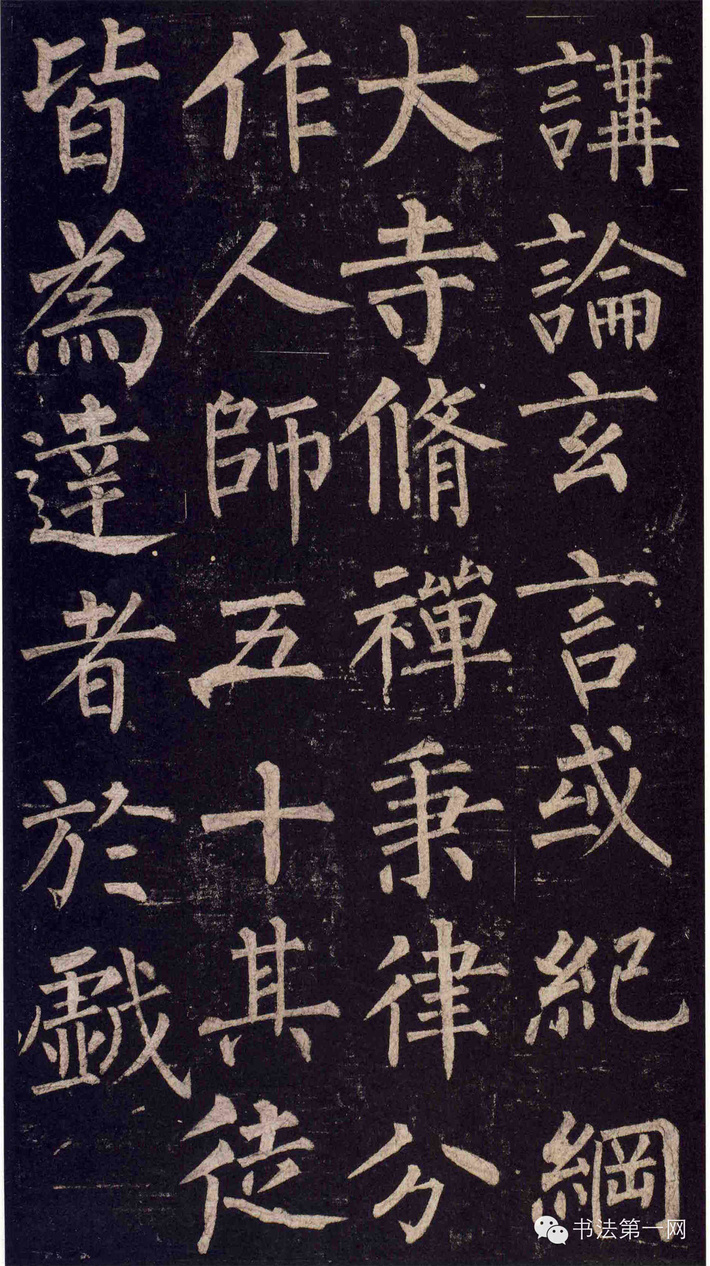 講論玄言或紀綱
大寺脩禪秉律分
作人師五十其徒
皆為達者於戯
书法第一网